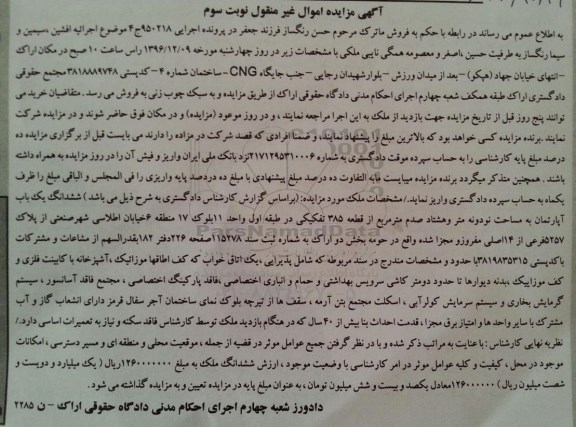 آگهی مزایده اموال غیر منقول نوبت سوم
به اطلاع عموم می رساند در رابطه با حکم به فروش ماترک مرحوم حسن رنگساز فرزند جعفر در پرونده اجرائی ۹۵۰۲۱۸ج۴ موضوع اجرائیه افشین ،سیمین و
سیما رنگساز به طرفیت حسین ،اصغر و معصومه همگی نایبی ملکی با مشخصات زیر در روز چهارشنبه مورخه ۱۳۹۶/۱۲/۰۹ راس ساعت ۱۰ صبح در مکان اراک
-انتهای خیابان جهاد (هپکو) – بعد از میدان ورزش – بلوار شهیدان رجایی – جنب جایگاه CNG – ساختمان شماره ۴ – کدپستی ۳۸۱۸۸۸۹۷۴۸ مجتمع حقوقی
دادگستری اراک طبقه همکف شعبه چهارم اجرای احکام مدنی دادگاه حقوقی اراک از طریق مزایده و به سبک چوب زنی به فروش می رسد . متقاضیان خرید می
توانند پنج روز قبل از تاریخ مزایده جهت بازدید از ملک به این اجرا مراجعه نمایند ، و در روز موعود (مزایده) و در مکان فوق حاضر شوند و در مزایده شرکت
نمایند .برنده مزایده کسی خواهد بود که بالاترین مبلغ را پیشنهاد نمایند، و ضمنا افرادی که قصد شرکت در مزاده را دارند می بایست قبل از برگزاری مزایده ده
درصد مبلغ پایه کارشناسی را به حساب سپرده موقت دادگستری به شماره ۲۱۷۱۲۹۵۳۱۰۰۰۶ نزد بانک ملی ایران واریز و فیش آن را در روز مزایده به همراه داشته
باشند . همچنین متذکر میگردد برنده مزایده میبایست مابه التفاوت ده درصد مبلغ پیشنهادی با مبلغ ده درصد پایه واریزی را فی المجلس و الباقی مبلغ را ظرف
یکماه به حساب سپرده دادگستری واریز نماید./مشخصات ملک مورد مزایده: (براساس گزارش کارشناس دادگستری به شرح ذیل می باشد ) ششدانگ یک باب
آپارتمان به مساحت نودونه متر وهشتاد صدم مترمربع از قطعه ۳۸۵ تفکیکی در طبقه اول واحد ۱۱بلوک ۱۷ منطقه ۶خیابان اطلاسی شهرصنعتی از پلاک
۵۲۵۷فرعی از ۱۴اصلی مفروزو مجزا شده واقع در حومه بخش دو اراک به شماره ثبت سند ۱۱۵۲۷۸صفحه ۲۲۶دفتر ۱۸۲بقدرالسهم از مشاعات و مشترکات
باکدپستی ۳۸۱۹۸۳۵۳۱۵با حدود و مشخصات مندرج در سند مربوطه که شامل پذیرایی ،یک اتاق خواب که کف اطاقها موزائیک ،آشپزخانه با کابینت فلزی و
کف موزاییک ،بدنه دیوارها تا حدود دومتر کاشی سرویس بهداشتی و حمام و انباری اختصاصی ،فاقد پارکینگ اختصاصی ، مجتمع فاقد آسانسور ، سیستم
گرمایش بخاری و سیستم سرمایش کولرآبی ، اسکلت مجتمع بتن آرمه ، سقف ها از تیرچه بلوک نمای ساختمان آجر سفال قرمز دارای انشعاب گاز و آب
مشترک با سایر واحد ها و امتیاز برق مجزا ، قدمت احداث بنا بیش از ۴۰ سال که در هنگام بازدید ملک توسط کارشناس فاقد سکنه و نیاز به تعمیرات اساسی دارد./
نظریه نهایی کارشناس : با عنایت به مراتب ذکر شده و با در نظر گرفتن جمیع عوامل موثر در قضیه از جمله ، موقعیت محلی و منطقه ای و مسیر دسترسی ، امکانات
موجود در محل ، کیفیت و کلیه عوامل موثر در امر کارشناسی با وضعیت موجود ، ارزش ششدانگ ملک به مبلغ ۱۲۶۰۰۰۰۰۰۰ریال ( یک میلیارد و دویست و
شصت میلیون ریال) ۱۲۶۰۰۰۰۰۰معادل یکصد و بیست و شش میلیون تومان ، به عنوان مبلغ پایه در مزایده تعیین و به مزایده گذاشته می شود.
دادورز شعبه چهارم اجرای احکام مدنی دادگاه حقوقی اراک – ن ۲۲۸۵
ParsNamadData